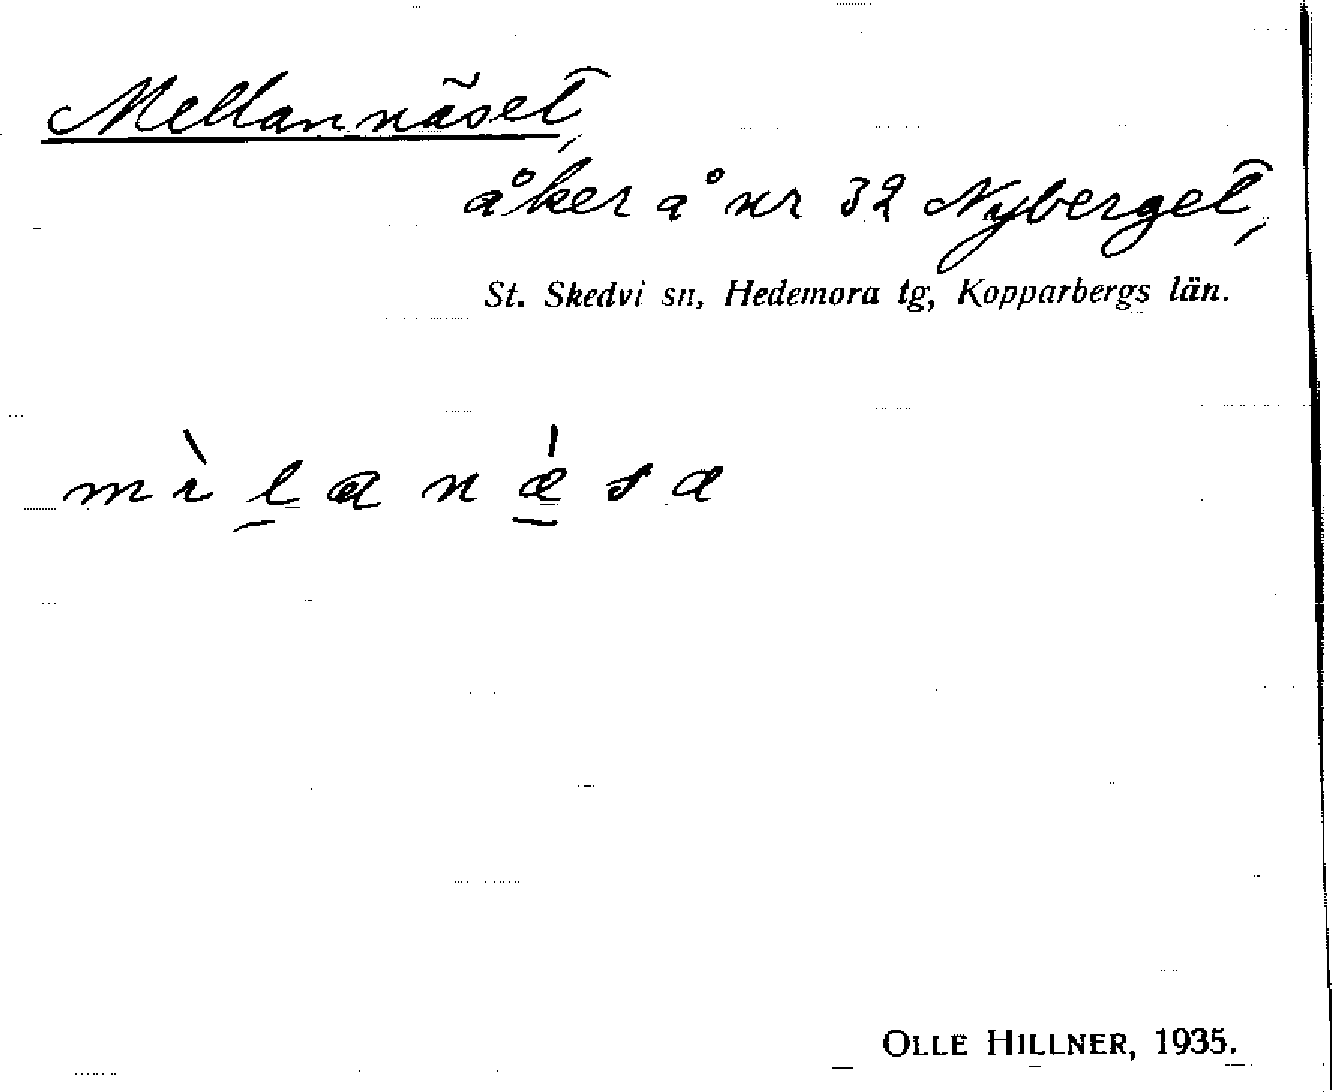 Mellannäset,
åker å nr 32 Nyberget,
St. Skedvi sn, Hedemora tg, Kopparbergs län.
mɪ̀l̲anǽ̲sa
OLLE HILLNER, 1935.